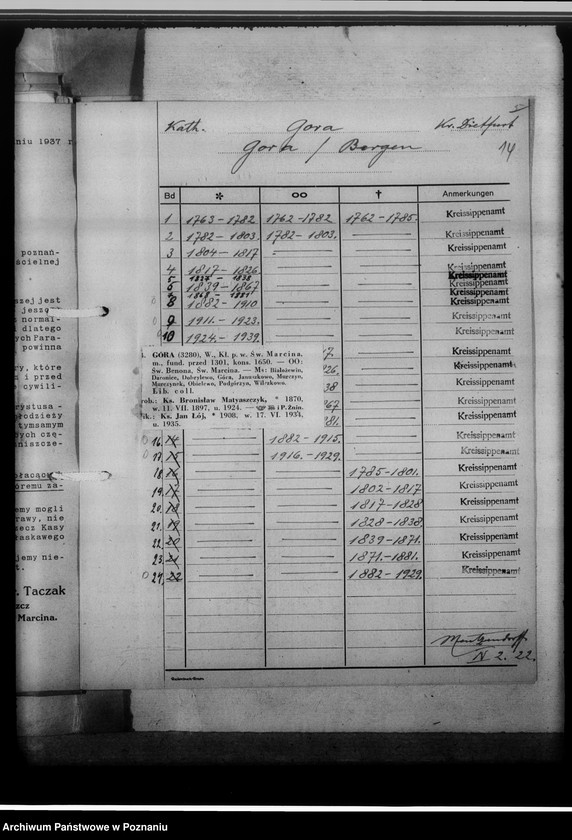 niu 1937 r
poznań-
acielnej
szej jest
jeszcz
normal-
dlatego
ych Para-
powinna
ry, które
i przed
cywili-
rystusa -
młodzieży
tymsamym
ych czę-
niszcze-
płacącuch
óremu za-
emy mogli
rawy, nie
rzecz Kasy
łaskawego
jemy nie-
t.
. Taczak
szcz
Marcina.
Kath. Gora Kr. Dietfurt
Gora / Bergen 14
Bd * oo † Anmerkungen
1 1763-1782 1762-1782 1762-1785. Kreissippenamt
2 1782-1803. 1782-1803. Kreissippenamt
3 1804-1817 Kreissippenamt
4 1817-1826 Kreissippenamt
5 1827 1838 Kreissippenamt
6 1839-1867 Kreissippenamt
7 1868 1881 Kreissippenamt
8 1882-1910 Kreissippenamt
9 1911.-1923. Kreissippenamt
10 1924.-1939. Kreissippenamt
GÓRA (3280), W., Kl. p. w. Św. Marcina. 7. Kreissippenamt
m., fund. przed 1301, kons. 1650. — OO:
Św. Benona, Św. Marcina. — Ms: Białożewin, 26. Kreissippenamt
Daronice, Dobrylewo, Góra, Januszkowo, Murczyn,
Murczynek, Obielewo, Podgórzyn, Wilczkowo. 38 Kreissippenamt
Lib. coll.
rob.: Ks. Bronisław Matyaszczyk, * 1870, 67 Kreissippenamt
w. 11. VII. 1897, u. 1924. — 38 i P. Żnin.
ik.: Ks. Jan Łój, * 1908, w. 17. VI. 1934, 81. Kreissippenamt
u. 1935.
16. 14 1882-1915. Kreissippenamt
17. 15 1916.-1929. Kreissippenamt
18. 16 1785-1801. Kreissippenamt
19. 17 1802-1817 Kreissippenamt
20. 18 1817-1828 Kreissippenamt
21. 19 1828-1838 Kreissippenamt
22. 20 1839-1871. Kreissippenamt
23. 21 1871.-1881. Kreissippenamt
24. 22 1882-1929. Kreissippenamt
IV. 2. 22.
Archiwum Państwowe w Poznaniu